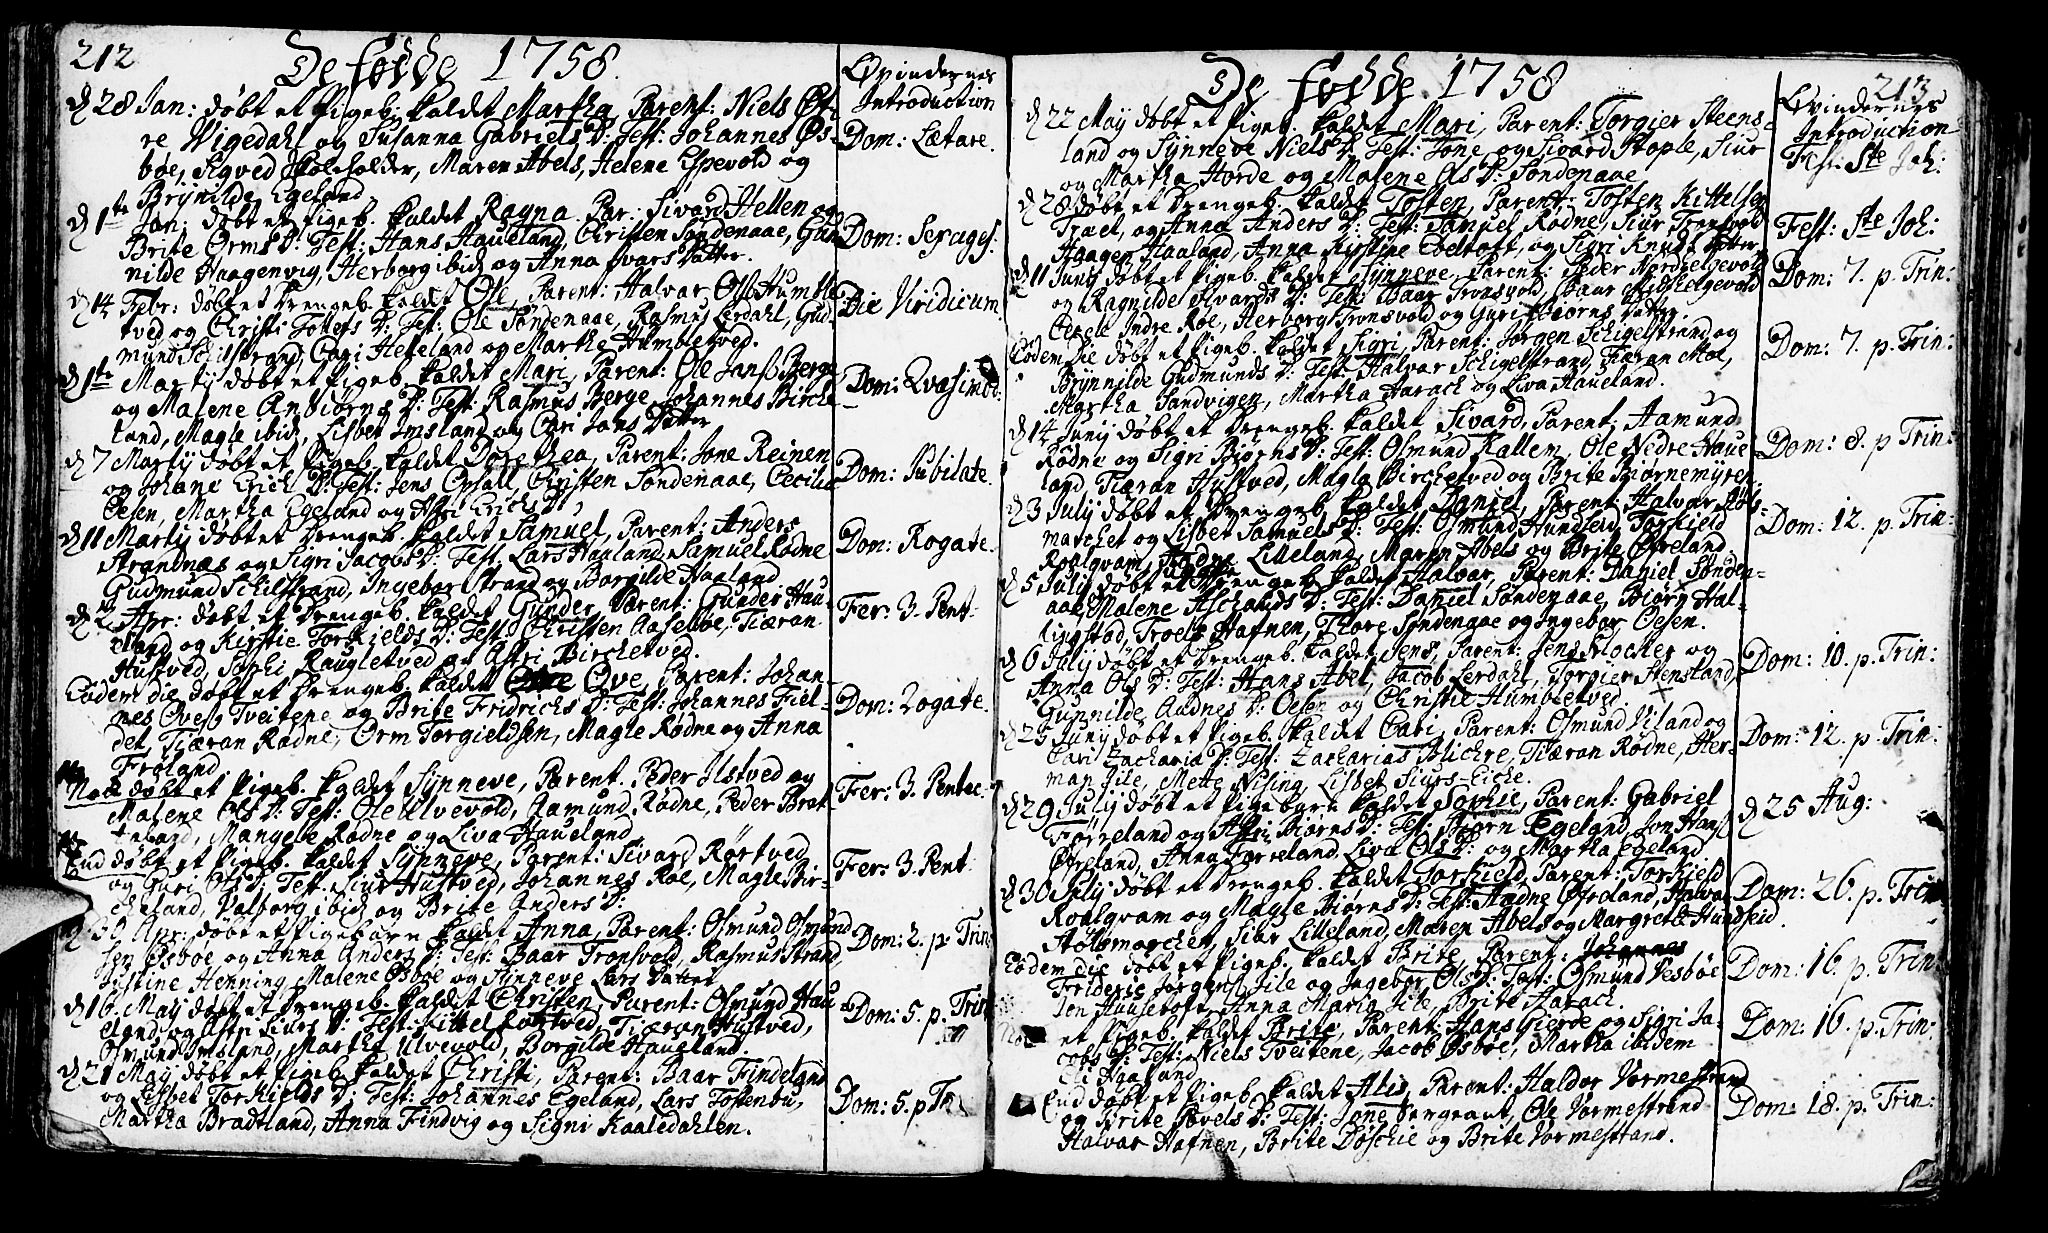 212
De fødde 1758.
Qvindernes
Introduction
d 28 Jan: døbt et Pigeb. kaldet Martha, Parent: Niels
re Vigedahl og Susanna Gabriels D: Test: Johannes Øs-
bøe, Sigved Skoleholder, Maren Abels, Helene Espevold og
Brynilde Egeland
Dom: Lætare.
d 1te Jan: døbt et Pigeb. kaldet Ragna. Par: Sivard Hellen og
Brite Orms D: Test: Hans Haueland, Christen Søndenaae, Gun
nilde Haagenvig, Herborg ibid, og Anna Ivars Datter.
Dom: Sexages:
d 14 Febr: døbt et Drengeb. kaldet Ole, Parent: Halvar Ols Humble
tved og Christi Tostens D: Test: Ole Søndenaae, Rasmus Lerdahl, Gud-
mund Schilstrand, Cari Hetteland og Marthe Humbletved.
Die Viridicum
d 1te Martij døbt et Pigeb. kaldet Mari, Parent: Ole Jans Berge
og Malene Anbiørns D: Test: Rasmus Berge, Johannes Birche
land, Magle ibid, Lisbet Imsland og Cari Jans Datter
Dom: Qvasimod.
d 7 Martij døbt et Pigeb. kaldet Dorethea, Parent: Jone Reinen
og Johane Erich D: Test: Jens Opsall, Christen Søndenaae, Cecilia
Oesen, Martha Egeland og Astri Erichs D:
Dom: Jubilate.
d 11 Martij døbt et Drengeb. kaldet Samuel, Parent: Anders
Strandnæs og Sigri Jacobs D: Test: Lars Haaland, Samuel Rødne
Gudmund Schilstrand, Ingebor Strand og Borgilde Haaland
Dom: Rogate.
d 2 Apr: døbt et Drengeb. kaldet Gunder, Parent: Gunder Hau-
eland og Kirstie Torkields D: Test: Christen Aaseboe, Tiæran
Hustved, Sophi Raugletved og Astri Birchetved.
Fer: 3. Pent:
Eodem die døbt et Drengeb. kaldet Ove, Parent: Johan-
nes Oves Tveitene og Brite Fridrichs D: Test: Johannes Fiel-
det, Tiæran Rødne, Orm Torgieldsen, Magle Rødne og Anna
Frøland
Dom: Rogate.
Nock døbt et Pigeb. kaldet Synneve, Parent. Peder Ilstved og
Malene Ols D: Test: Ole Ulvevold, Aamund Rødne, Peder Brat-
teland, Mangele Rødne og Liva Haueland
Fer: 3. Pentec.
End døbt et Pigeb. kaldet Synneve, Parent: Sivard Rørtved
og Guri Ols D: Test: Siur Hustved, Johannes Roe, Magle Bir-
cheland, Valborg ibid og Brite Anders D:
Fer: 3. Pent:
d 30 Apr: døbt et Pigebarn kaldet Anna, Parent: Osmund Osmund
sen Øsbøe og Anna Anders D: Test: Baar Tronsvold, Rasmus Strand,
Justine Henning, Malene Øsbøe og Synneve Lars Datter
Dom: 2. p. Trin:
d 16 May døbt et Drengeb. kaldet Christen, Parent: Osmund Hau
eland og Astri Siurs D: Test: Kittel Rørtved, Tiæran Hustved,
Osmund Imsland, Martha Ulvevold, Borgilde Haueland.
Dom: 5. p. Trin
d 21 May døbt et Pigeb. kaldet Christi, Parent: Baar Findeland
og Lisbet Torkields D: Test: Johannes Egeland, Lars Tostenbu,
Martha Bradtland, Anna Findvig og Signi Kaaledahlen.
Dom: 5. p. Tr
213
De fødde 1758
Qvindernes
Introduction
d 22 May døbt et Pigeb. kaldet Mari, Parent: Torgier Steens-
land og Synneve Niels D: Test: Jone og Sivard Stople, Siur
og Martha Horde og Malene Ols D: Søndenaae
Fest: Ste Joh:
d 28 døbt et Drengeb. kaldet Tosten, Parent: Tosten Kittelsen
Traet, og Anna Anders D: Test: Samuel Rødne, Siur Tronsvold
Haagen Haaland, Anna Kirstine Ebeltoft, og Sigri Knuds Datter
Fest: Ste Joh:
d 11 Junij døbt et Pigeb. kaldet Synneve, Parent: Peder Nordhelgevold
og Ragnilde Sivards D: Test: Baar Tronsvold, Baar Midhelgevold
Oesele Indre Roe, Herborg Tronsvold og Guri Biørns Datter.
Dom: 7. p. Trin:
Eodem die døbt et Pigeb. kaldet Sigri, Parent: Jørgen Schigelstrand og
Brynnilde Gudmunds D: Test: Halvar Schigelstrand, Tiæran Moe,
Martha Sandvigen, Martha Harach og Liva Haueland.
Dom: 7. p. Trin:
d 14 Junij døbt et Drengeb. kaldet Sivard, Parent: Aamund
Rødne og Sigri Biørns D: Test: Osmund Kallem, Ole Nedre Haue
land, Tiæran Hustved, Magla Birchetved og Brite Biørnemyren.
Dom: 8. p Trin:
d 3 July døbt et Drengeb. kaldet Daniel, Parent: Halvar Røls-
marchet og Lisbet Samuels D: Test: Osmund Hundseid, Torkield
Roalqvam, Aadne Lilleland, Maren Abels og Brite Øfreland
Dom: 12. p. Trin:
d 5 July døbt et Drengeb. kaldet Halvar, Parent: Daniel Sønden-
aae, Malene Aschauds D: Test: Daniel Søndenaae, Biørn Hal-
kigstad, Troels Hafnen, Thore Søndenaae og Ingebor Oesen.
d 6 July døbt et Drengeb. kaldet Jens, Parent: Jens Mocher og
Anna Ols D: Test: Hans Abel, Jacob Lerdahl, Torgier Stensland,
Gunnilde Audnes D: Oesen og Christie Humbletved.
Dom: 10. p. Trin:
d 25 Junij døbt et Pigeb. kaldet Cari, Parent: Osmund Viland og
Cari Zacharia D: Test: Zacharias Blichre, Tiæran Rødne, Her-
man Jile, Mette Nising, Lisbet Siurs-Eiche.
Dom: 12. p. Trin:
d 29 July døbt et Pigebarn kaldet Sophie, Parent: Gabriel
Førreland og Astri Biørns D: Test: Biørn Egeland, Jon Hans
Øvreland, Anna Førreland, Liva Ols D: og Martha Egeland
d 25 Aug:
d 30 July døbt et Drengeb. kaldet Torkield, Parent: Torkield
Roalqvam og Magle Biørns D: Test: Aadne Øfreland, Halvar
Rølsmarchen, Siur Lilleland, Maren Abels og Margrete Hundseid.
Dom: 26. p. Trin
Eodem die døbt et Pigeb. kaldet Brite, Parent: Johannes
Frideric Jørgens Jile og Ingebor Ols D: Test: Osmund Vesbøe
Ien Huusetoft, Anna Maria Jile, Brite Harach
Dom: 16. p. Trin:
et Pigeb. kaldet Brite, Parent: Hans Gierde og Sigri Ja-
cobs D: Test: Niels Tveitene, Jacob Øsbøe, Martha ibidem
Eli Haaland
Dom: 16. p. Trin:
End døbt et Pigeb. kaldet Alis, Parent: Haldor Vormestrand
og Brite Povels D: Test: Jone Sergeant, Ole Vormestrand
Halvar Hafnen, Brite Døschie og Brite Vormestrand.
Dom: 18. p. Trin: